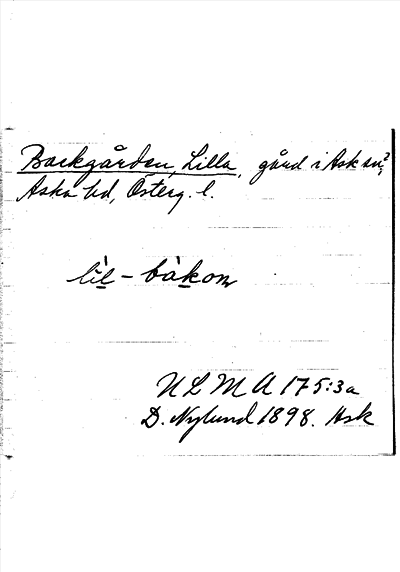 Backgården, Lilla, gård i Ask sn,
Aska hd, Österg. l.
lìl - bàkom
ULMA 175:3a
D. Nylund 1898. Ask